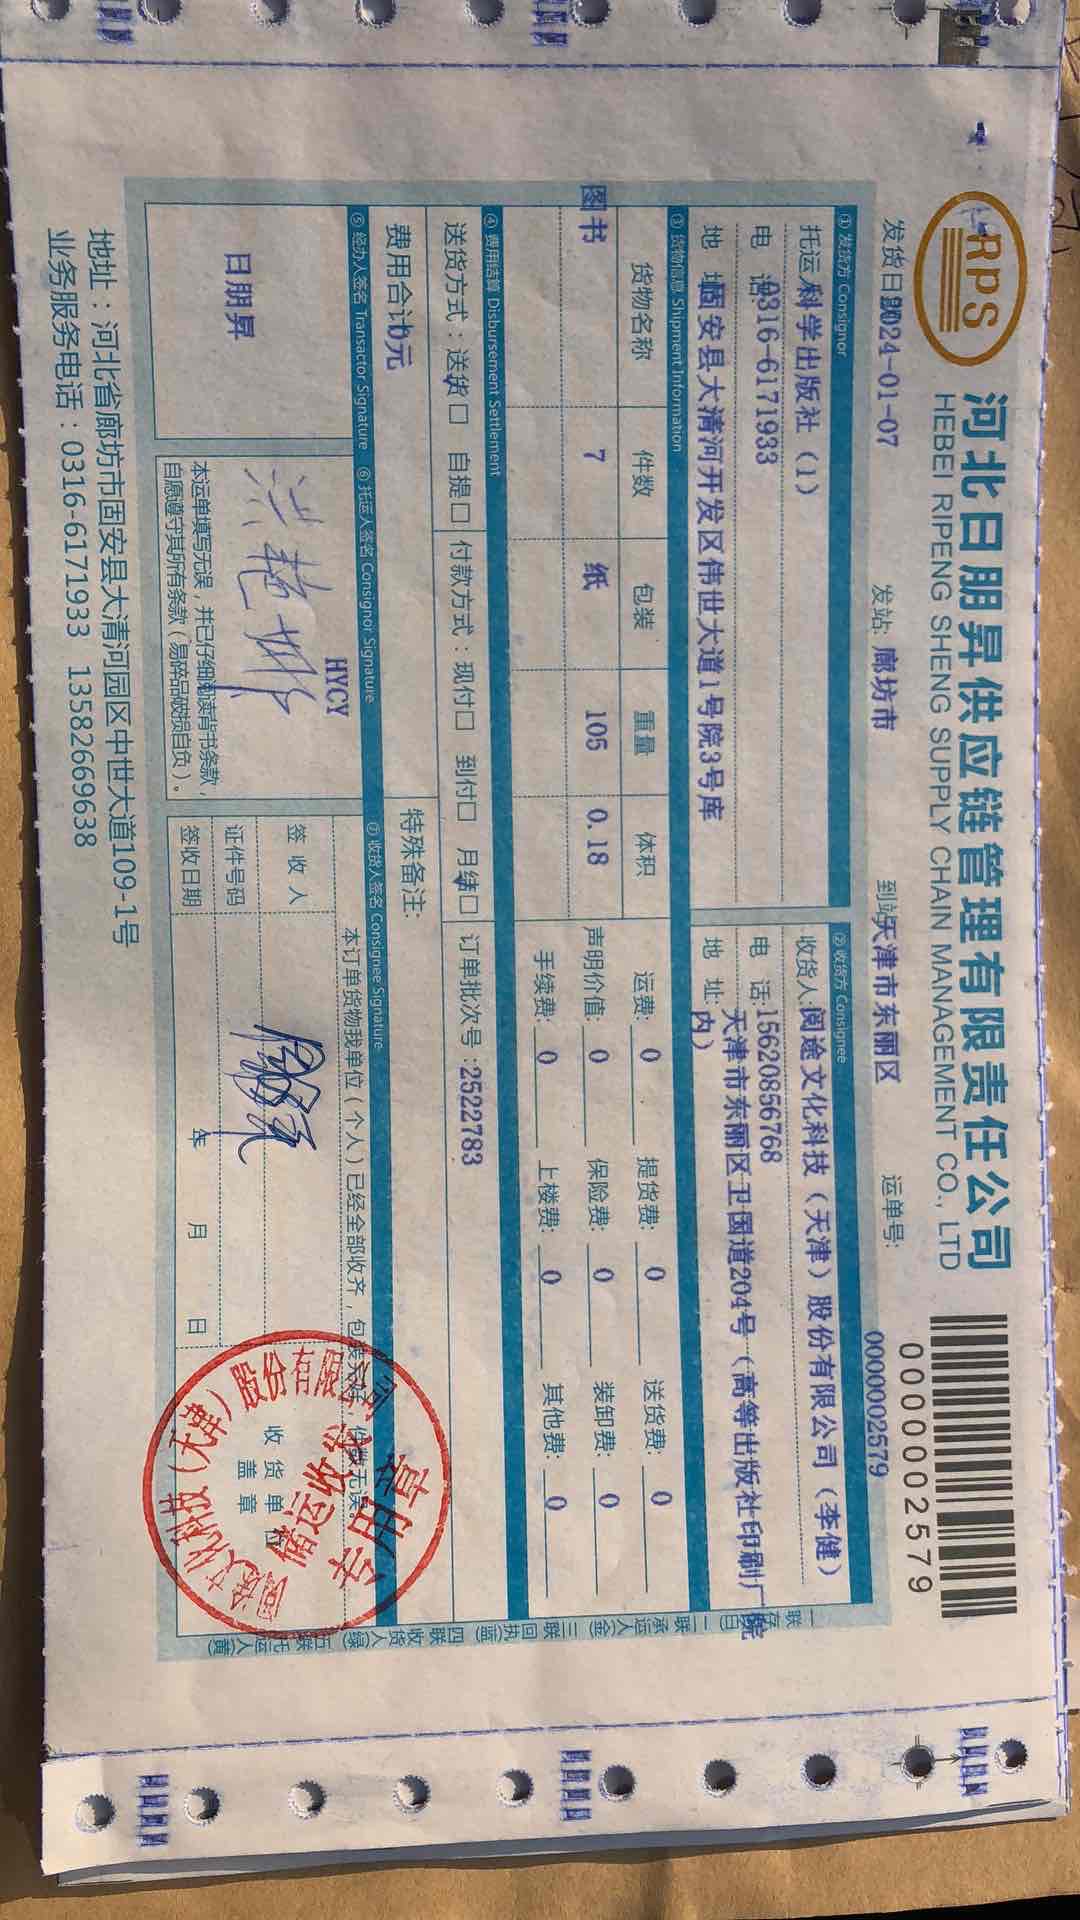 RPS
河北日朋昇供应链管理有限责任公司
HEBEI RIPENG SHENG SUPPLY CHAIN MANAGEMENT CO., LTD
0000002579
发货日期2024-01-07 发站: 廊坊市 到站天津市东丽区 运单号: 0000002579
① 发货方 Consignor ② 收货方 Consignee
托运 科学出版社 (1) 收货人:阅途文化科技（天津）股份有限公司（李健）
电 话:0316-6171933 电 话:15620856768
地 址固安县大清河开发区伟世大道1号院3号库 地 址:天津市东丽区卫国道204号（高等出版社印刷厂院内）
③ 货物信息 Shipment Information
货物名称 件数 包装 重量 体积 运费: 0 提货费: 0 送货费: 0
图书 7 纸 105 0.18 声明价值: 0 保险费: 0 装卸费: 0
手续费: 0 上楼费: 0 其他费: 0
④ 费用结算 Disbursement Settlement
送货方式：送货口 自提口 付款方式：现付口 到付口 月结口 订单批次号:2522783
费用合计0元 特殊备注:
⑤ 经办人签名 Transactor Signature ⑥ 托运人签名 Consignor Signature ⑦ 收货人签名 Consignee Signature
日朋昇
HYCY
本运单填写无误，并已仔细阅读背书条款，
自愿遵守其所有条款（易碎品破损自负）。
本订单货物我单位（个人）已经全部收齐，包装完好，件数无误
签 收 人
证件号码
签收日期 年 月 日
收 货 单 位
盖 章
科技（天津）股份有限公司
储运收发
专用章
一联存根(白) 二联承运人(金) 三联回执(蓝) 四联收货人(绿) 五联托运人(黄)
地址：河北省廊坊市固安县大清河园区中世大道109-1号
业务服务电话：0316-6171933 13582669638